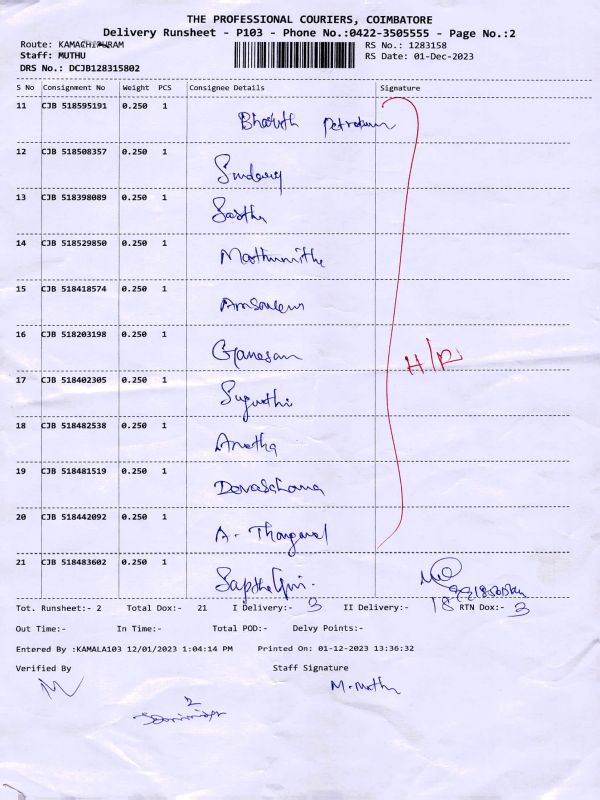 THE PROFESSIONAL COURIERS, COIMBATORE
Delivery Runsheet - P103 - Phone No.:0422-3505555 - Page No.:2
Route: KAMACHIPURAM RS No.: 1283158
Staff: MUTHU RS Date: 01-Dec-2023
DRS No.: DCJB128315802
S No Consignment No Weight PCS Consignee Details Signature
11 CJB 518595191 0.250 1 Bharath Petroleum
12 CJB 518508357 0.250 1
13 CJB 518398089 0.250 1 Sastha
14 CJB 518529850 0.250 1 Mathumitha
15 CJB 518418574 0.250 1
16 CJB 518203198 0.250 1 Ganesan
H/R
17 CJB 518402305 0.250 1 Suguthi
18 CJB 518482538 0.250 1 Anetha
19 CJB 518481519 0.250 1
20 CJB 518442092 0.250 1 A. Thangavel
21 CJB 518483602 0.250 1
Tot. Runsheet:- 2 Total Dox:- 21 I Delivery:- 3 II Delivery:- 18 RTN Dox:- 3
Out Time:- In Time:- Total POD:- Delvy Points:-
Entered By :KAMALA103 12/01/2023 1:04:14 PM Printed On: 01-12-2023 13:36:32
Verified By Staff Signature
M. Muthu
2